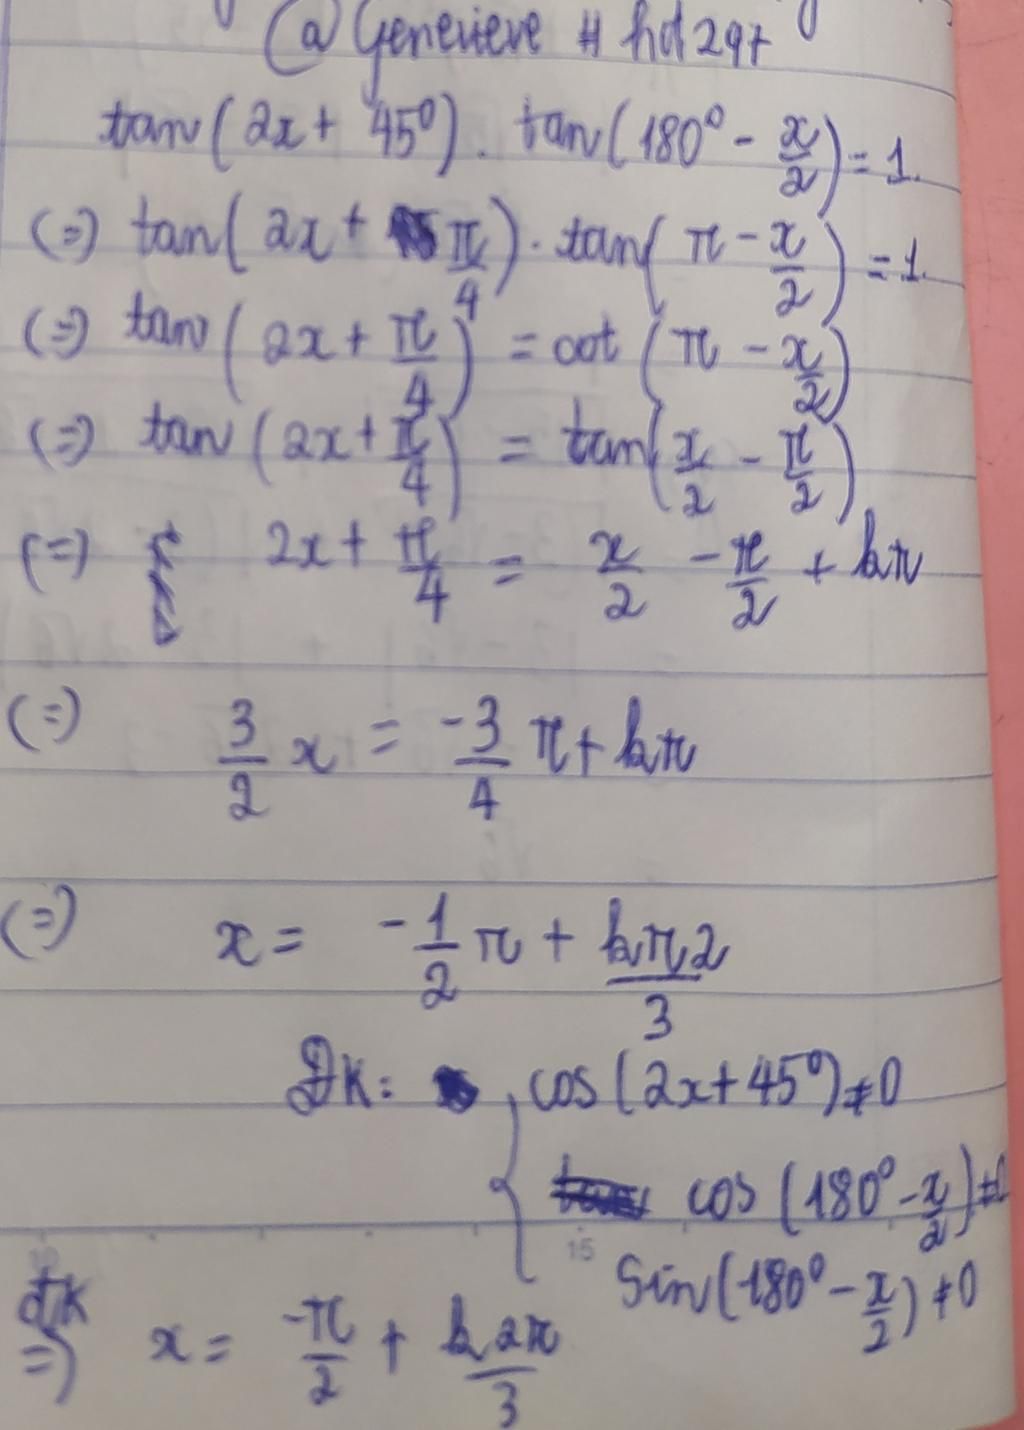 @Genevieve # hd297
tan(2x + 45⁰). tan(180⁰ - x/2) = 1.
(=) tan(2x + π/4). tan(π - x/2) = 1.
(=) tan(2x + π/4) = cot(π - x/2)
(=) tan(2x + π/4) = tan(x/2 - π/2)
(=) 2x + π/4 = x/2 - π/2 + kπ
(=) 3/2 x = -3/4 π + kπ
(=) x = -1/2 π + kπ2/3
ĐK: { cos(2x + 45⁰) ≠ 0
cos(180⁰ - x/2) ≠ 0
sin(180⁰ - x/2) ≠ 0
đk
=) x = -π/2 + k2π/3